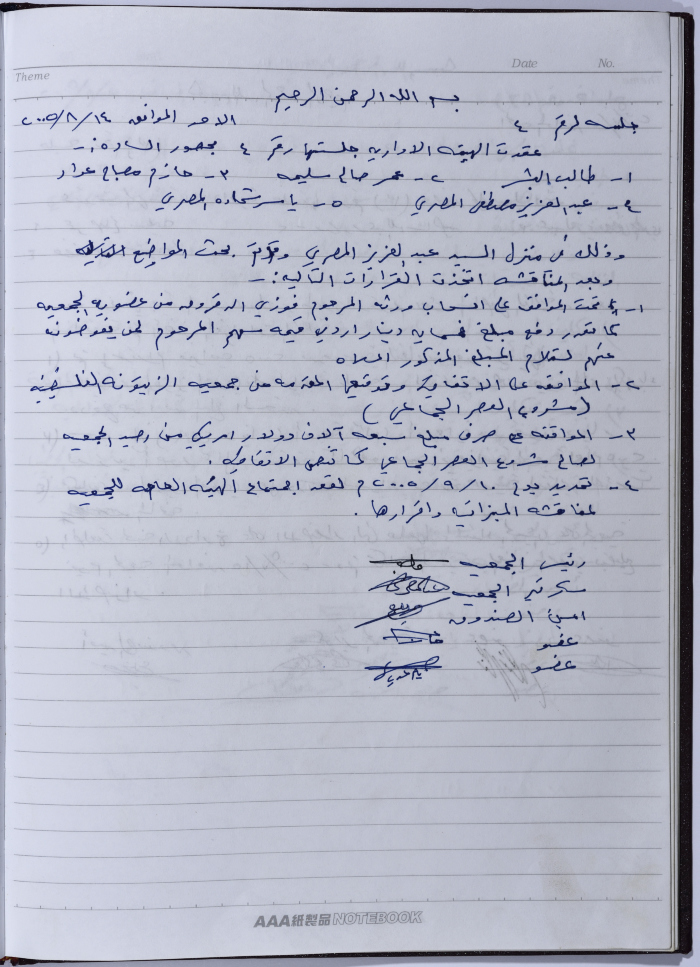 Theme Date No.
بسم الله الرحمن الرحيم
جلسه رقم ٤ الاحد الموافق ٢٠٠٥/٨/١٤
عقدت الهيئه الاداريه جلستها رقم ٤ بحضور الساده :-
١- طالب البشر ٢- عمر صالح سليمه ٣- حازم مصباح عواد
٤- عبد العزيز مصطفى المصري ٥- ياسر شحاده المصري
وذلك في منزل السيد عبد العزيز المصري وقد تم بحث المواضيع التاليه
وبعد المناقشه اتخذت القرارات التاليه :-
١- تمت الموافقه على انسحاب ورثه المرحوم فوزي من عضويه الجمعيه
كما تقرر دفع مبلغ خمسمايه دينار اردني قيمه سهم المرحوم لمن يفوضونه
عنهم لاستلام المبلغ المذكور اعلاه
٢- الموافقه على الاتفاقية وتوقيعها المقدمه من جمعيه الزيتونه الفلسطينيه
(مشروع العصر الجماعي)
٣- الموافقه على صرف مبلغ سبعه آلاف دولار امريكي من رصيد الجمعيه
لصالح مشروع العصر الجماعي كما تنص الاتفاقيه .
٤- تحديد يوم ٢٠٠٥/٩/١٠ م لعقد اجتماع الهيئه العامه للجمعيه
لمناقشه الميزانيه واقرارها .
رئيس الجمعيه
سكرتير الجمعيه
امين الصندوق
عضو
عضو
AAA紙製品 NOTEBOOK